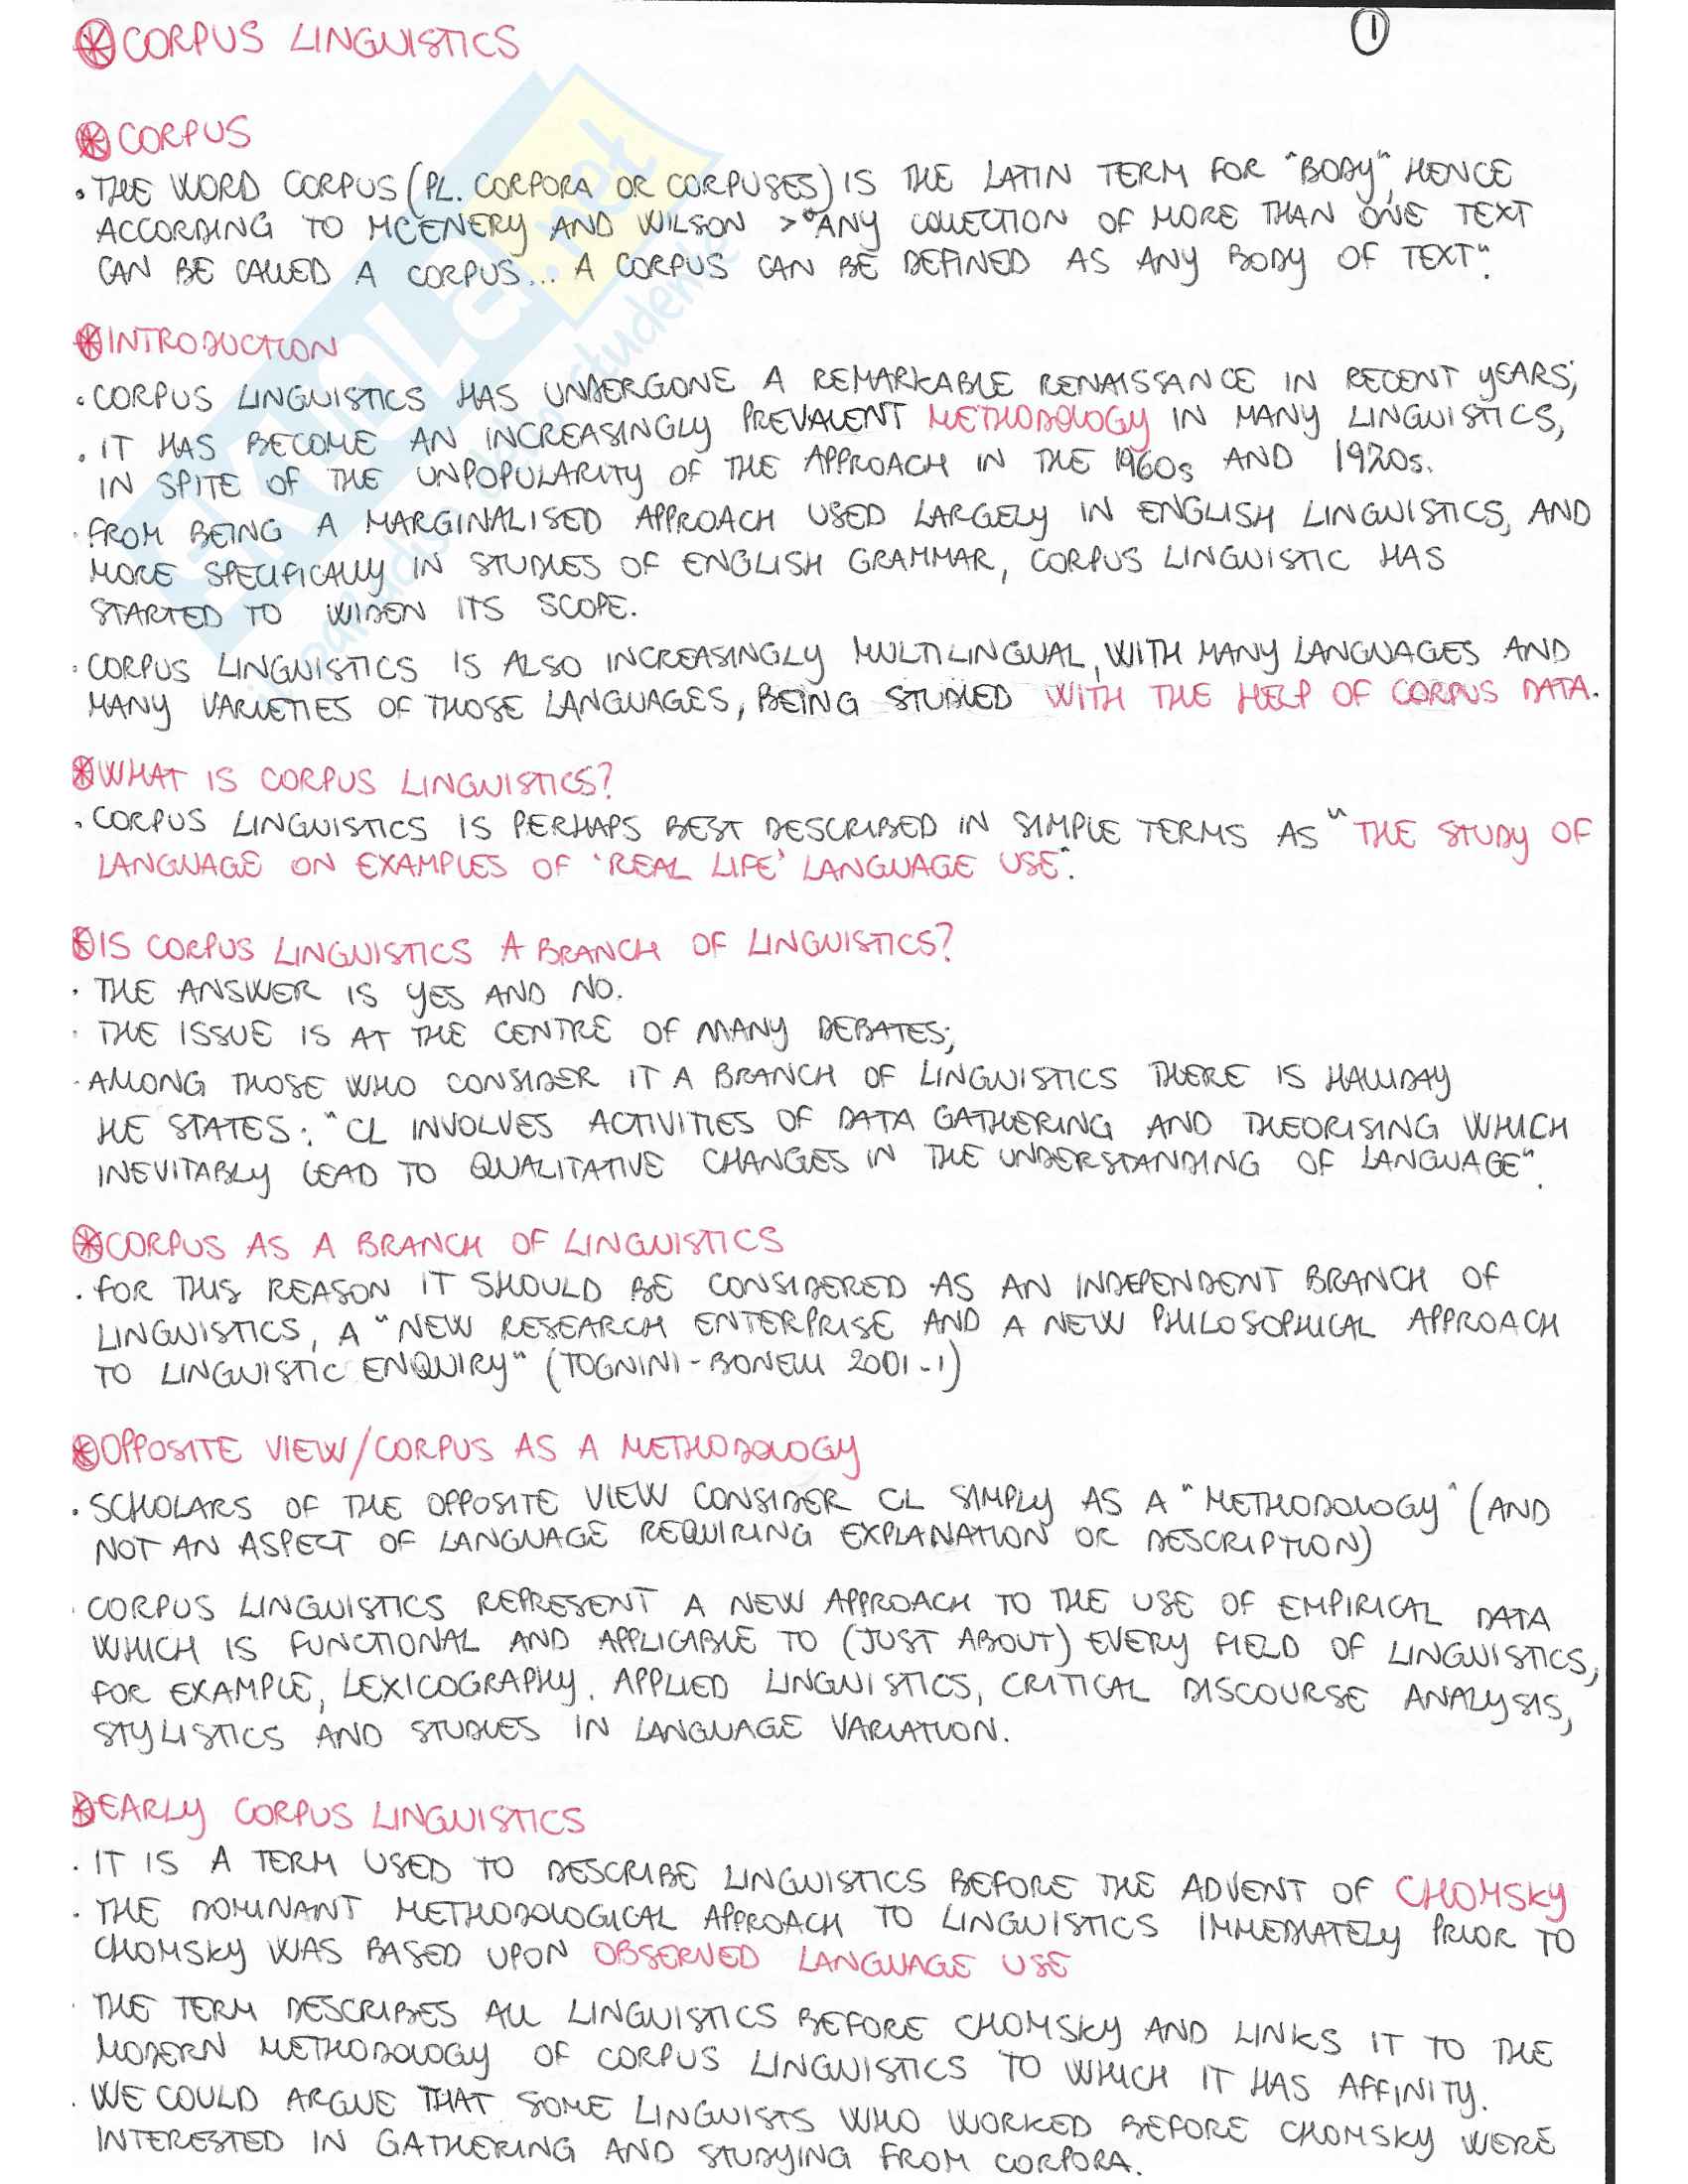 CORPUS LINGUISTICS
1
CORPUS
• THE WORD CORPUS (PL. CORPORA OR CORPUSES) IS THE LATIN TERM FOR "BODY", HENCE
ACCORDING TO MCENERY AND WILSON > "ANY COLLECTION OF MORE THAN ONE TEXT
CAN BE CALLED A CORPUS... A CORPUS CAN BE DEFINED AS ANY BODY OF TEXT".
INTRODUCTION
• CORPUS LINGUISTICS HAS UNDERGONE A REMARKABLE RENAISSANCE IN RECENT YEARS;
• IT HAS BECOME AN INCREASINGLY PREVALENT METHODOLOGY IN MANY LINGUISTICS,
IN SPITE OF THE UNPOPULARITY OF THE APPROACH IN THE 1960s AND 1970s.
• FROM BEING A MARGINALISED APPROACH USED LARGELY IN ENGLISH LINGUISTICS, AND
MORE SPECIFICALLY IN STUDIES OF ENGLISH GRAMMAR, CORPUS LINGUISTIC HAS
STARTED TO WIDEN ITS SCOPE.
• CORPUS LINGUISTICS IS ALSO INCREASINGLY MULTILINGUAL, WITH MANY LANGUAGES AND
MANY VARIETIES OF THOSE LANGUAGES, BEING STUDIED WITH THE HELP OF CORPUS DATA.
WHAT IS CORPUS LINGUISTICS?
• CORPUS LINGUISTICS IS PERHAPS BEST DESCRIBED IN SIMPLE TERMS AS "THE STUDY OF
LANGUAGE ON EXAMPLES OF 'REAL LIFE' LANGUAGE USE".
IS CORPUS LINGUISTICS A BRANCH OF LINGUISTICS?
• THE ANSWER IS YES AND NO.
• THE ISSUE IS AT THE CENTRE OF MANY DEBATES;
• AMONG THOSE WHO CONSIDER IT A BRANCH OF LINGUISTICS THERE IS HALLIDAY
HE STATES: "CL INVOLVES ACTIVITIES OF DATA GATHERING AND THEORISING WHICH
INEVITABLY LEAD TO QUALITATIVE CHANGES IN THE UNDERSTANDING OF LANGUAGE".
CORPUS AS A BRANCH OF LINGUISTICS
• FOR THIS REASON IT SHOULD BE CONSIDERED AS AN INDEPENDENT BRANCH OF
LINGUISTICS, A "NEW RESEARCH ENTERPRISE AND A NEW PHILOSOPHICAL APPROACH
TO LINGUISTIC ENQUIRY" (TOGNINI-BONELLI 2001-1)
OPPOSITE VIEW/CORPUS AS A METHODOLOGY
• SCHOLARS OF THE OPPOSITE VIEW CONSIDER CL SIMPLY AS A "METHODOLOGY" (AND
NOT AN ASPECT OF LANGUAGE REQUIRING EXPLANATION OR DESCRIPTION)
• CORPUS LINGUISTICS REPRESENT A NEW APPROACH TO THE USE OF EMPIRICAL DATA
WHICH IS FUNCTIONAL AND APPLICABLE TO (JUST ABOUT) EVERY FIELD OF LINGUISTICS,
FOR EXAMPLE, LEXICOGRAPHY, APPLIED LINGUISTICS, CRITICAL DISCOURSE ANALYSIS,
STYLISTICS AND STUDIES IN LANGUAGE VARIATION.
EARLY CORPUS LINGUISTICS
• IT IS A TERM USED TO DESCRIBE LINGUISTICS BEFORE THE ADVENT OF CHOMSKY
• THE DOMINANT METHODOLOGICAL APPROACH TO LINGUISTICS IMMEDIATELY PRIOR TO
CHOMSKY WAS BASED UPON OBSERVED LANGUAGE USE
• THE TERM DESCRIBES ALL LINGUISTICS BEFORE CHOMSKY AND LINKS IT TO THE
MODERN METHODOLOGY OF CORPUS LINGUISTICS TO WHICH IT HAS AFFINITY.
• WE COULD ARGUE THAT SOME LINGUISTS WHO WORKED BEFORE CHOMSKY WERE
INTERESTED IN GATHERING AND STUDYING FROM CORPORA.